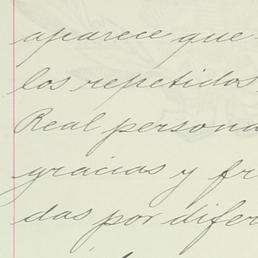 aparece que
los repetidos
Real persona
gracias y fr
das por difer